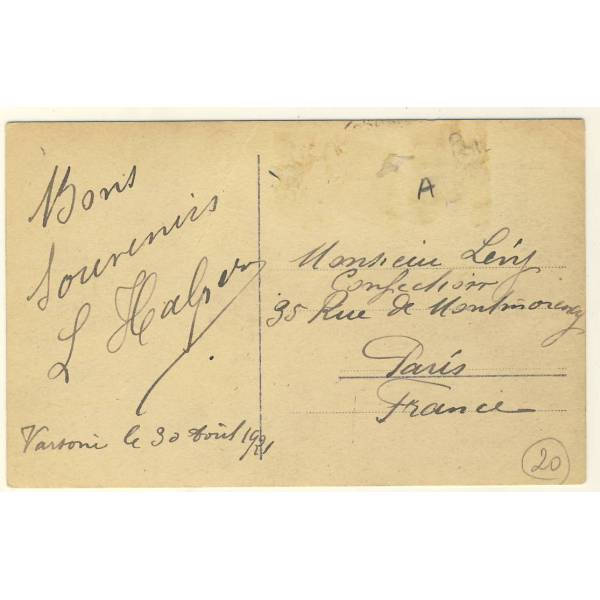 Bons
Souvenirs
L Halpern
Varsovi le 30 Août 1921
A
Monsieur Lévy
Confection
35 Rue de Montmorency
Paris
France
20